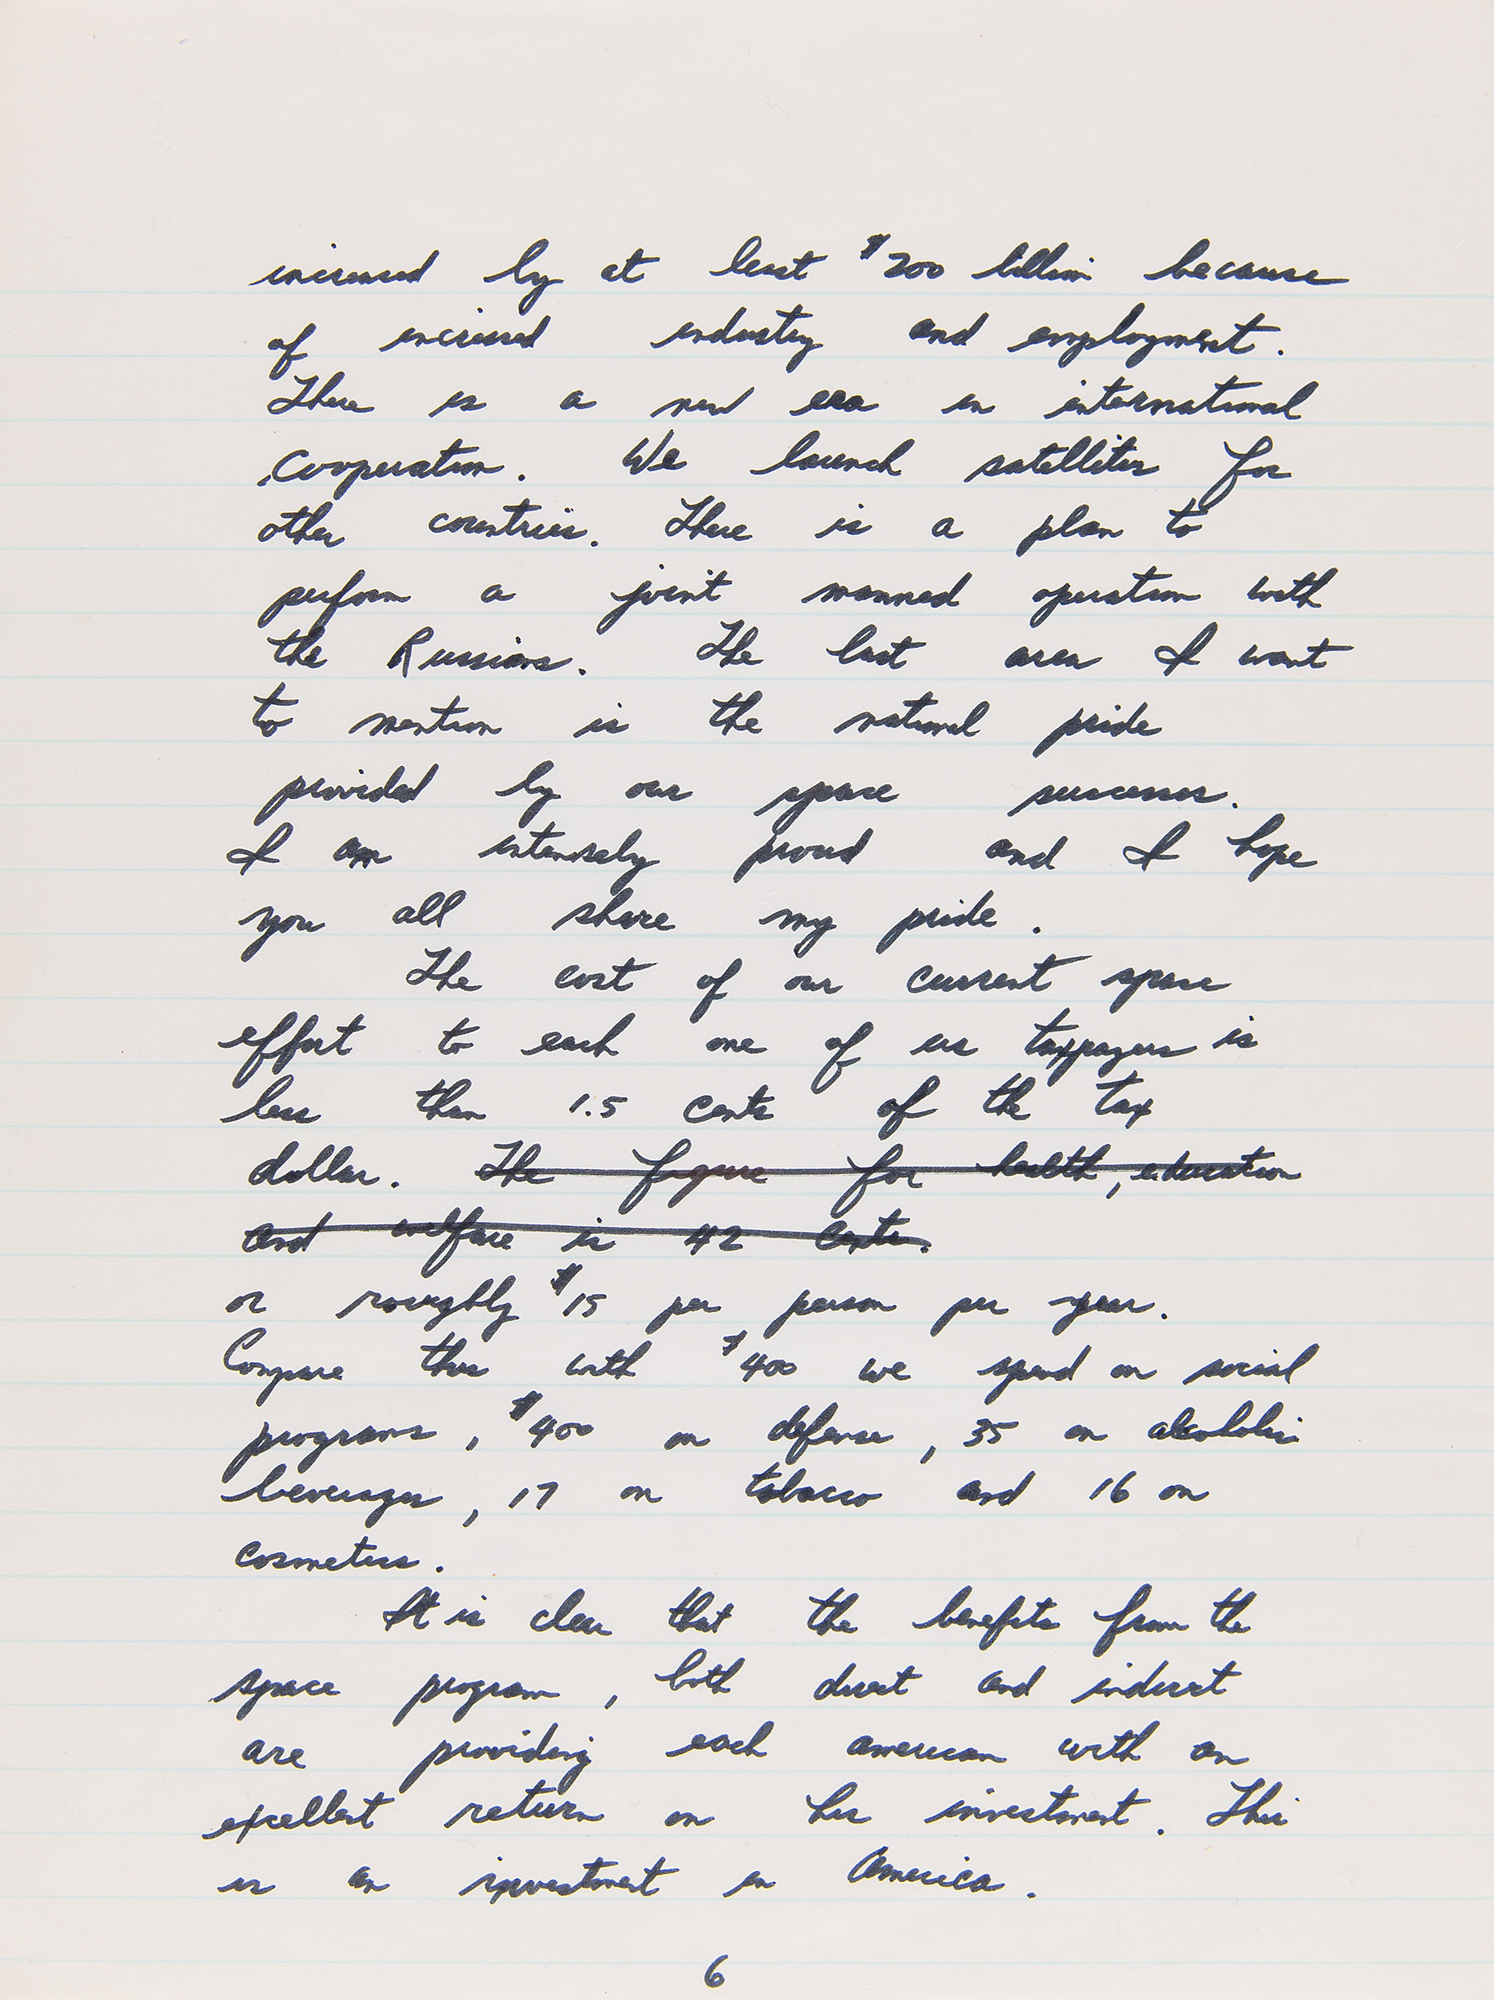 increased by at least $200 billion because
of increased industry and employment.
There is a new era in international
cooperation. We launch satellites for
other countries. There is a plan to
perform a joint manned operation with
the Russians. The last area I want
to mention is the national pride
provided by our space successes.
I am intensely proud and I hope
you all share my pride.
The cost of our current space
effort to each one of us taxpayers is
less than 1.5 cents of the tax
dollar. The figure for health, education
and welfare is 42 cents.
or roughly $15 per person per year.
Compare this with $400 we spend on social
programs, $400 on defense, 35 on alcoholic
beverages, 17 on tobacco and 16 on
cosmetics.
It is clear that the benefits from the
space program, both direct and indirect
are providing each american with an
excellent return on his investment. This
is an investment in America.
6